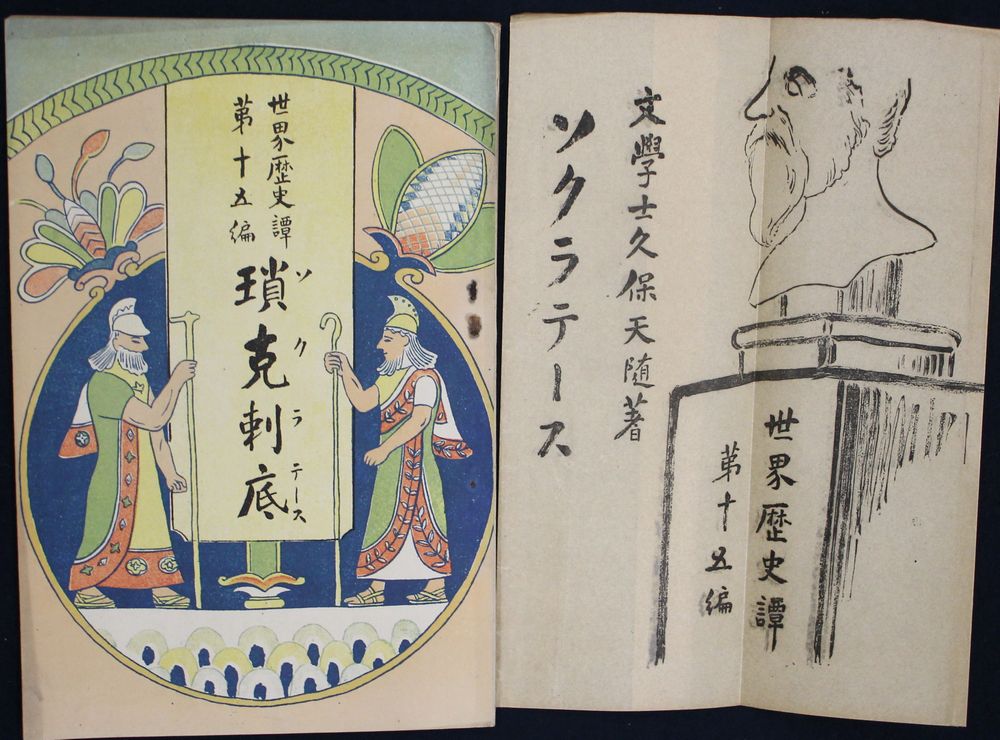 世界歴史譚
第十五編
瑣克剌底
ソクラテース
世界歴史譚
第十五編
文學士久保天随著
ソクラテース